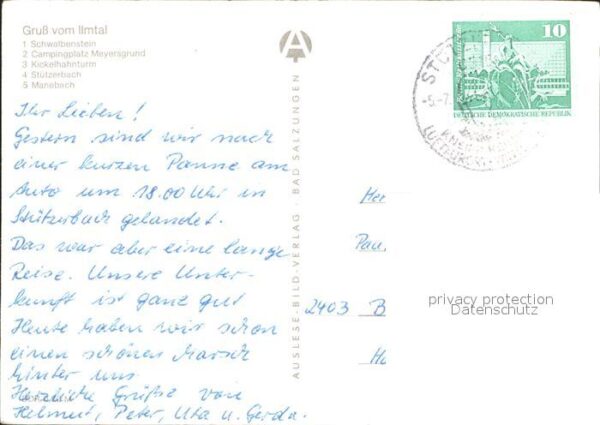 Gruß vom Ilmtal
1 Schwalbenstein
2 Campingplatz Meyersgrund
3 Kickelhahnturm
4 Stützerbach
5 Manebach
Ihr Lieben!
Gestern sind wir nach
einer kurzen Panne am
Auto um 18.00 Uhr in
Stützerbach gelandet.
Das war aber eine lange
Reise. Unsere Unter-
kunft ist ganz gut
Heute haben wir schon
einen schönen Marsch
hinter uns
Herzliche Grüße von
Helmut, Peter, Uta u. Gerda.
AUSLESE-BILD-VERLAG · BAD SALZUNGEN
10
DEUTSCHE DEMOKRATISCHE REPUBLIK
-5.-7.
Her
Pau
2403 B
privacy protection
Datenschutz